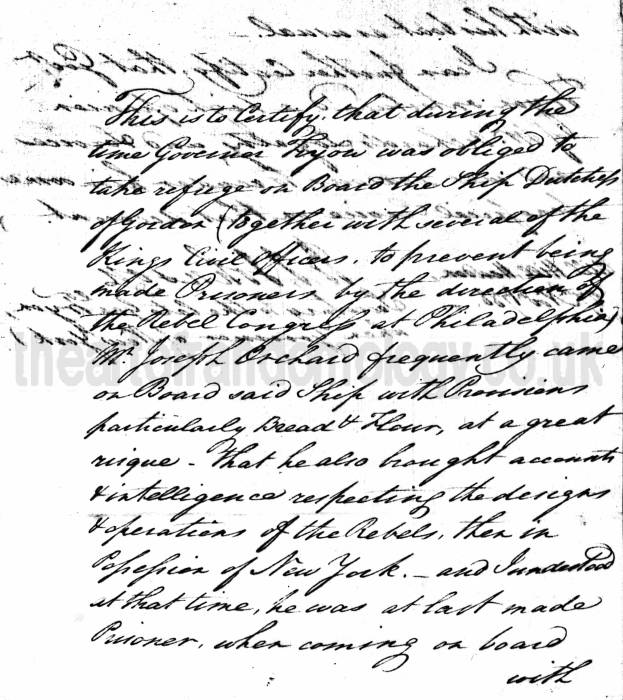 with his boat as usual —
I can further Certify, that
This is to Certify, that during the
time Governer Tryon was obliged to
take refuge on Board the Ship Dutchess
of Gordon (together with several of the
Kings Civil officers, to prevent being
made Prisoners by the direction of
the Rebel Congress at Philadelphia)
Mr. Joseph Orchard frequently came
on Board said Ship with Provisions
particularly Bread & Flour, at a great
risque - That he also brought accounts
& intelligence respecting the designs
& operations of the Rebels, then in
Possession of New York. — and I understood
at that time, he was at last made
Prisoner, when coming on board
with
theartofrandomology.co.uk